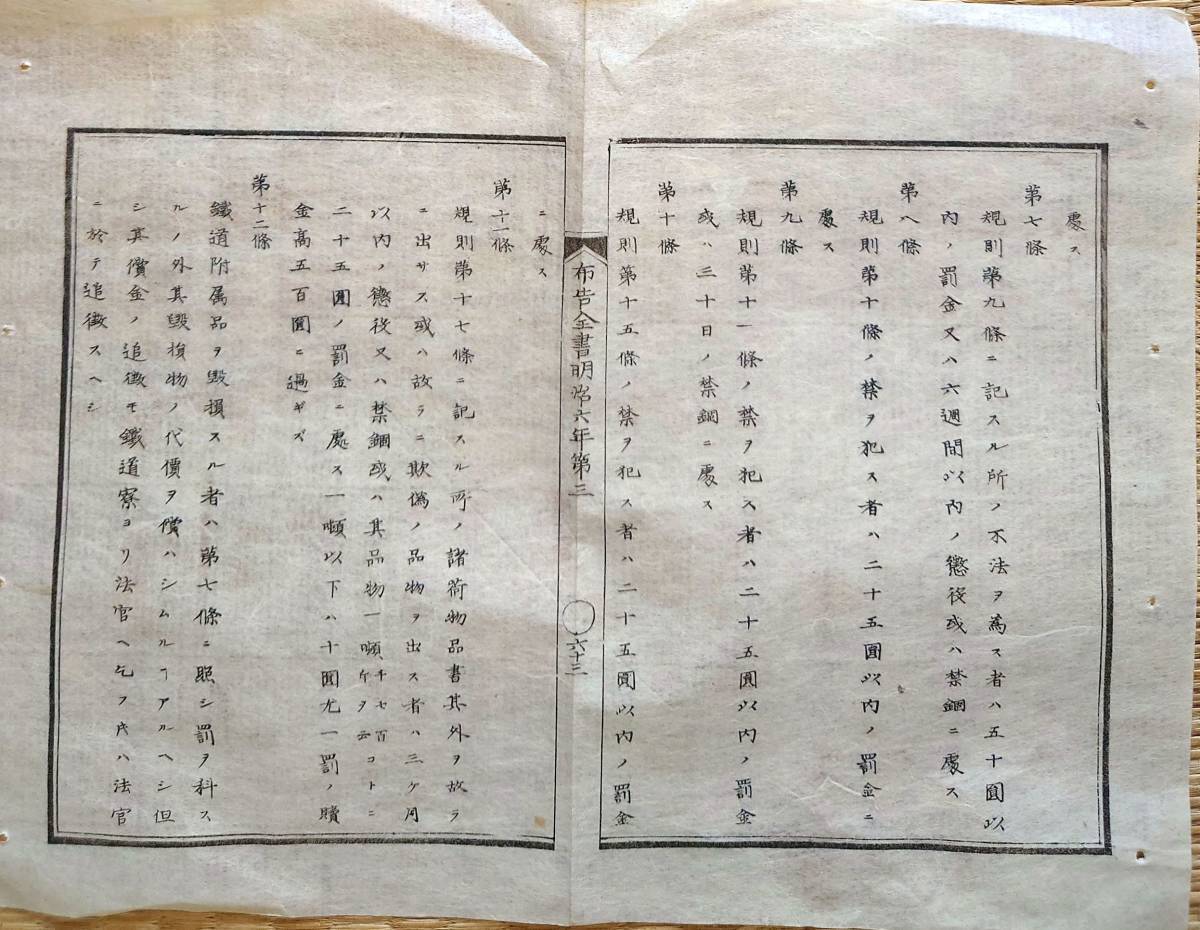 處ス
第七條
規則第九條ニ記スル所ノ不法ヲ爲ス者ハ五十圓以
内ノ罰金又ハ六週間以内ノ懲役或ハ禁錮ニ處ス
第八條
規則第十條ノ禁ヲ犯ス者ハ二十五圓以内ノ罰金ニ
處ス
第九條
規則第十一條ノ禁ヲ犯ス者ハ二十五圓以内ノ罰金
或ハ三十日ノ禁錮ニ處ス
第十條
規則第十五條ノ禁ヲ犯ス者ハ二十五圓以内ノ罰金
布告全書明治六年第三 〇六十三
ニ處ス
第十一條
規則第十七條ニ記スル所ノ諸荷物品書其外ヲ故ラ
ニ出サス或ハ故ラニ欺僞ノ品物ヲ出ス者ハ三ケ月
以内ノ懲役又ハ禁錮或ハ其品物一噸千七百斤ヲ云コトニ
二十五圓ノ罰金ニ處ス一噸以下ハ十圓尤一罰ノ贖
金高五百圓ニ過ギズ
第十二條
鐵道附属品ヲ毀損スル者ハ第七條ニ照シ罰ヲ科ス
ルノ外其毀損物ノ代價ヲ償ハシムルヿアルヘシ但
シ其價金ノ追徴モ鐵道寮ヨリ法官ヘ乞フ𪜈ハ法官
ニ於テ追徴スヘシ